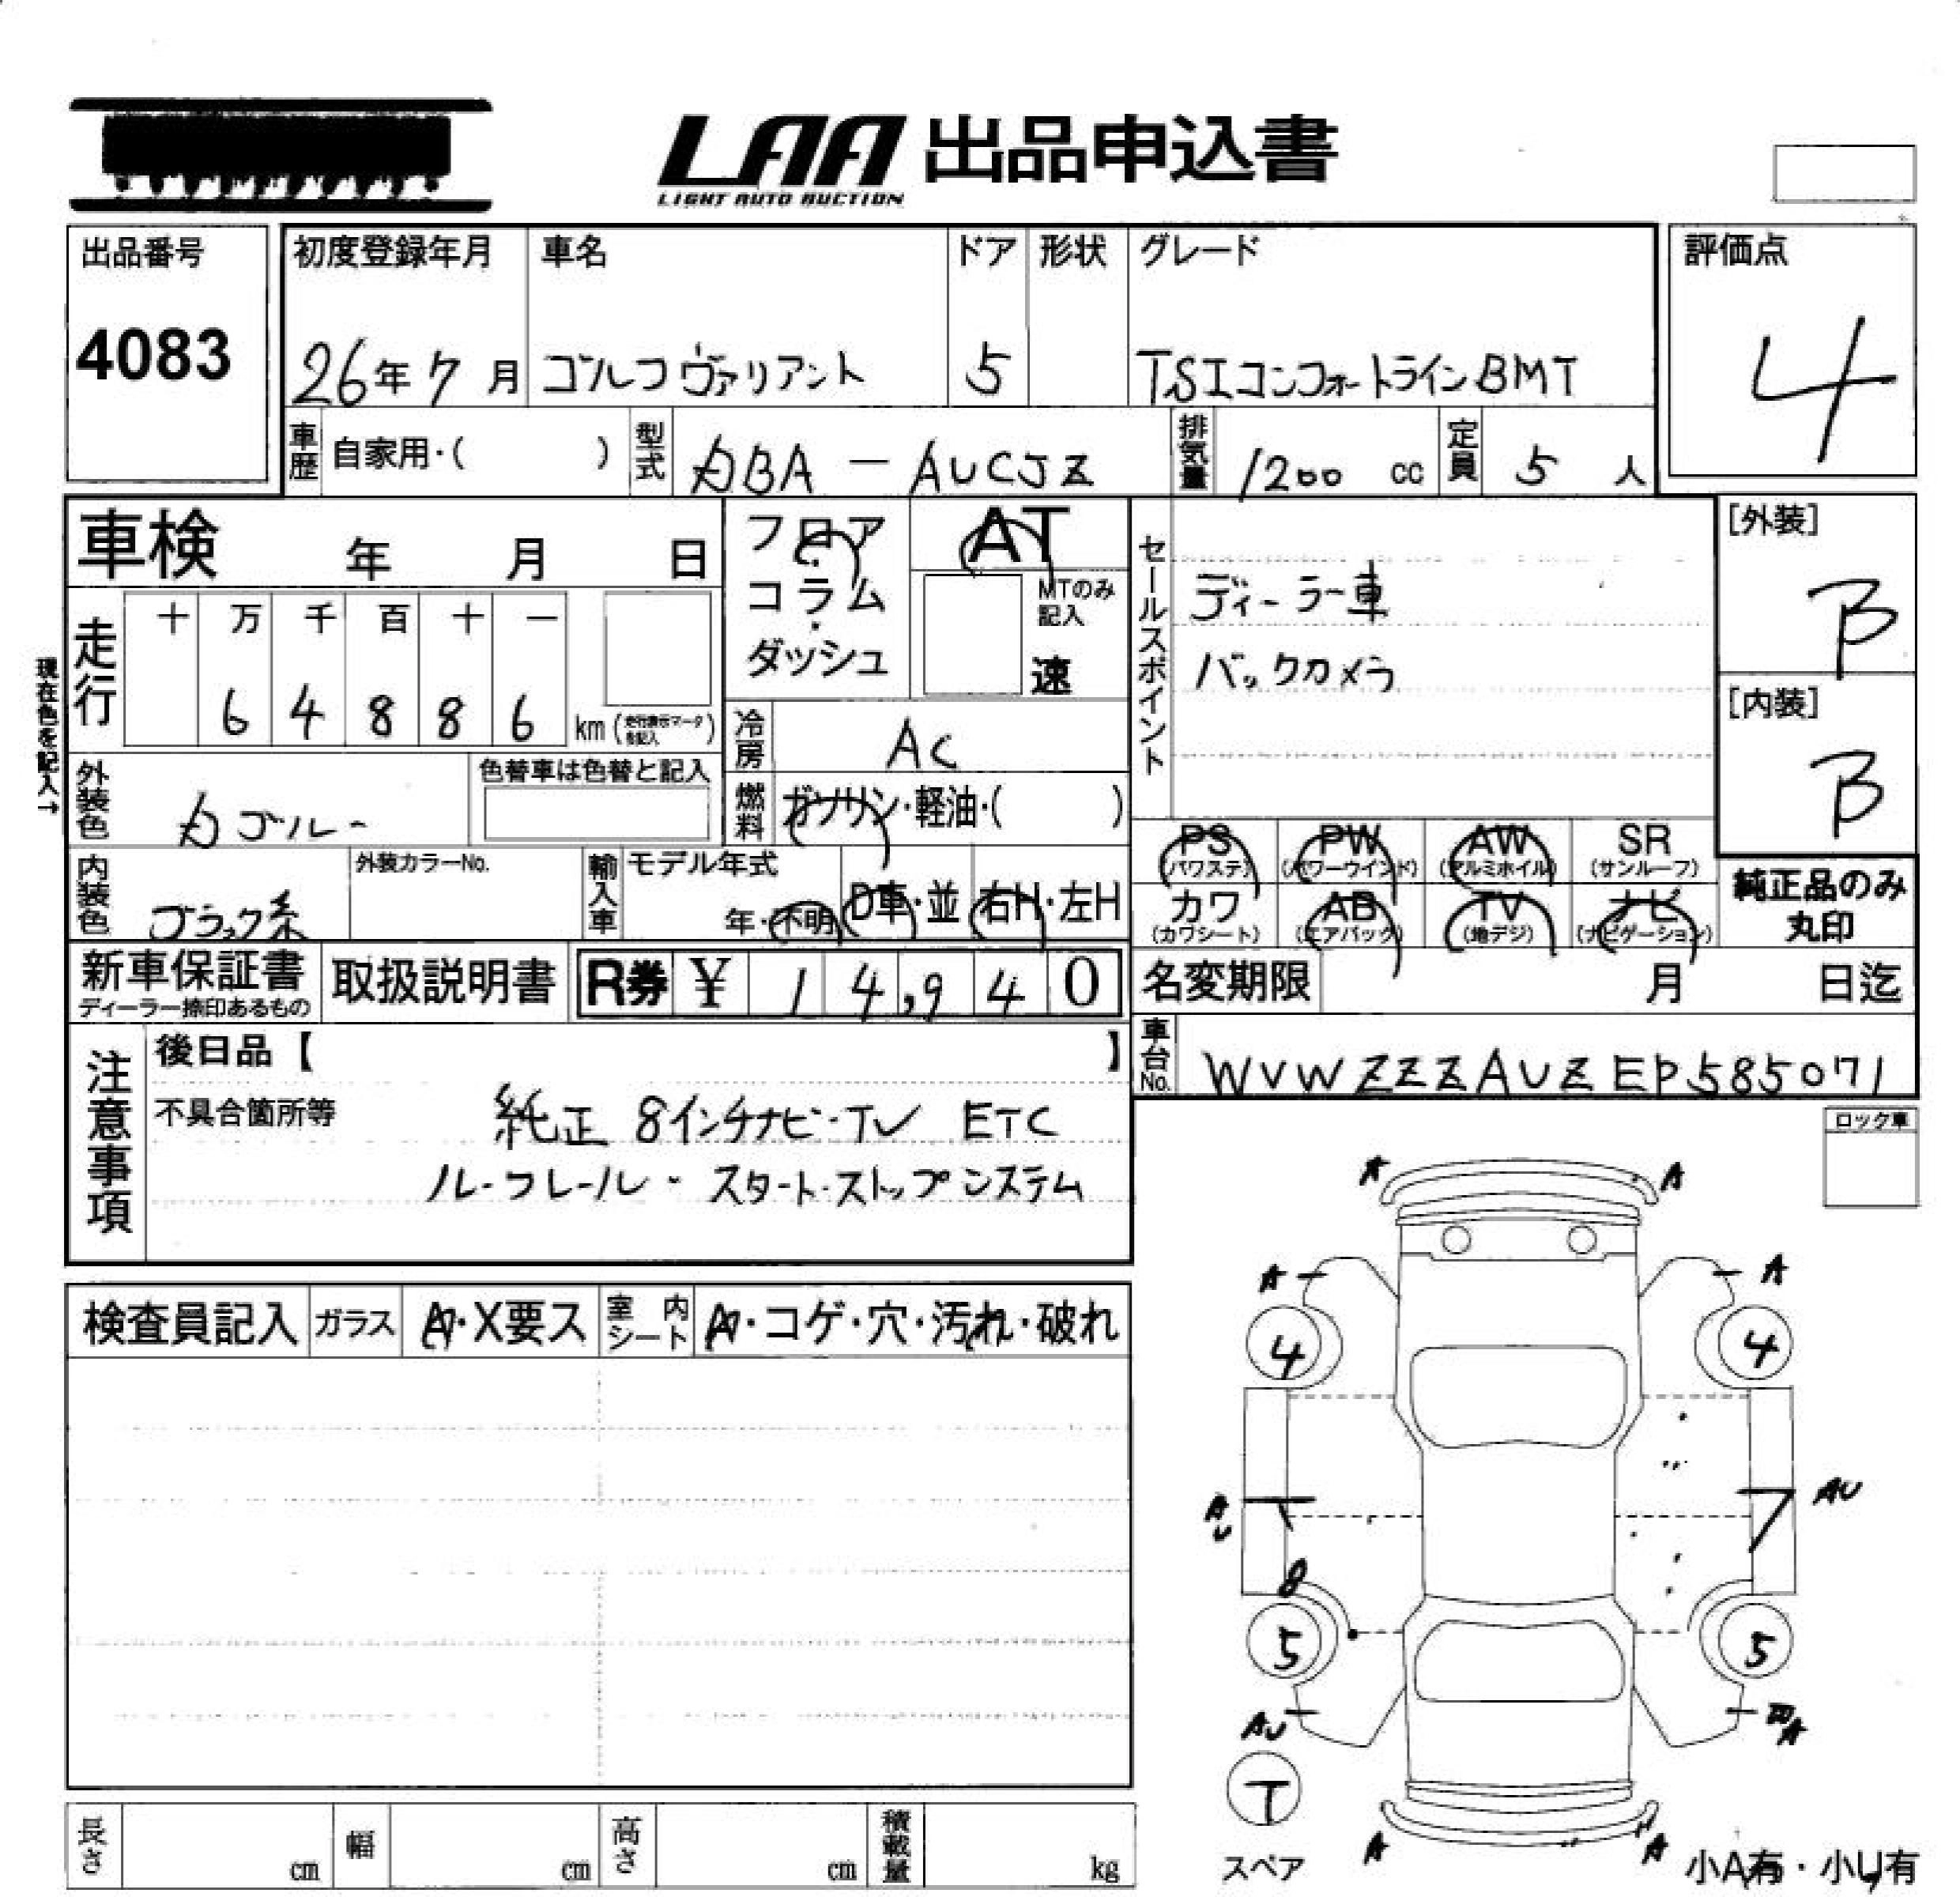 LAA 出品申込書
LIGHT AUTO AUCTION
出品番号
4083
初度登録年月
26年7月
車名
ゴルフヴァリアント
ドア
5
形状
グレード
TSIコンフォートラインBMT
評価点
4
車歴 自家用・( )
型式 DBA-AUCJZ
排気量 1200 cc
定員 5 人
車検 年 月 日
フロア・コラム・ダッシュ
AT
MTのみ記入
速
セールスポイント
ディーラー車
バックカメラ
[外装]
B
[内装]
B
現在色を記入→
走行 十 万 千 百 十 一
6 4 8 8 6 km (走行表示マータ を記入)
冷房 AC
外装色
色替車は色替と記入
燃料 ガソリン・軽油・( )
内装色 ブラック系
外装カラーNo.
輸入車 モデル年式
年・不明 D車・並 右H・左H
PS (パワステ) PW (パワーウインド) AW (アルミホイル) SR (サンルーフ)
カワ (カワシート) AB (エアバック) TV (地デジ) ナビ (ナビゲーション)
純正品のみ
丸印
新車保証書
ディーラー捺印あるもの
取扱説明書
R券 ¥ 14,940
名変期限 月 日迄
車台No. WVWZZZAUZEP585071
注意事項
後日品【 】
不具合箇所等 純正 8インチナビ・TV ETC
ルーフレール・スタートストップシステム
ロック車
検査員記入 ガラス A・X要ス 室内シート A・コゲ・穴・汚れ・破れ
A A
A A
4 4
AU AU
8
5 5
AU A
T
スペア
A A
小A有・小U有
長さ cm 幅 cm 高さ cm 積載量 kg